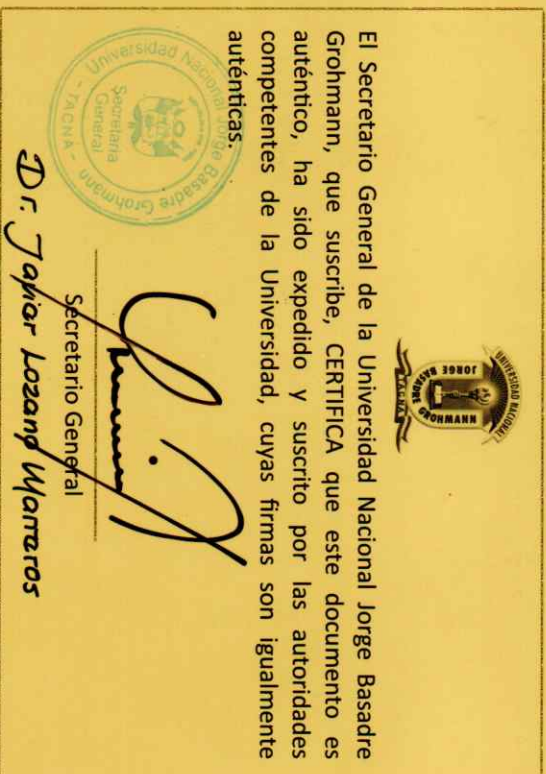 UNIVERSIDAD NACIONAL
JORGE BASADRE
GROHMANN
TACNA
El Secretario General de la Universidad Nacional Jorge Basadre
Grohmann, que suscribe, CERTIFICA que este documento es
auténtico, ha sido expedido y suscrito por las autoridades
competentes de la Universidad, cuyas firmas son igualmente
auténticas.
Universidad Nacional Jorge Basadre Grohmann
Secretaria
General
- TACNA -
Secretario General
Dr. Javier Lozano Marreros